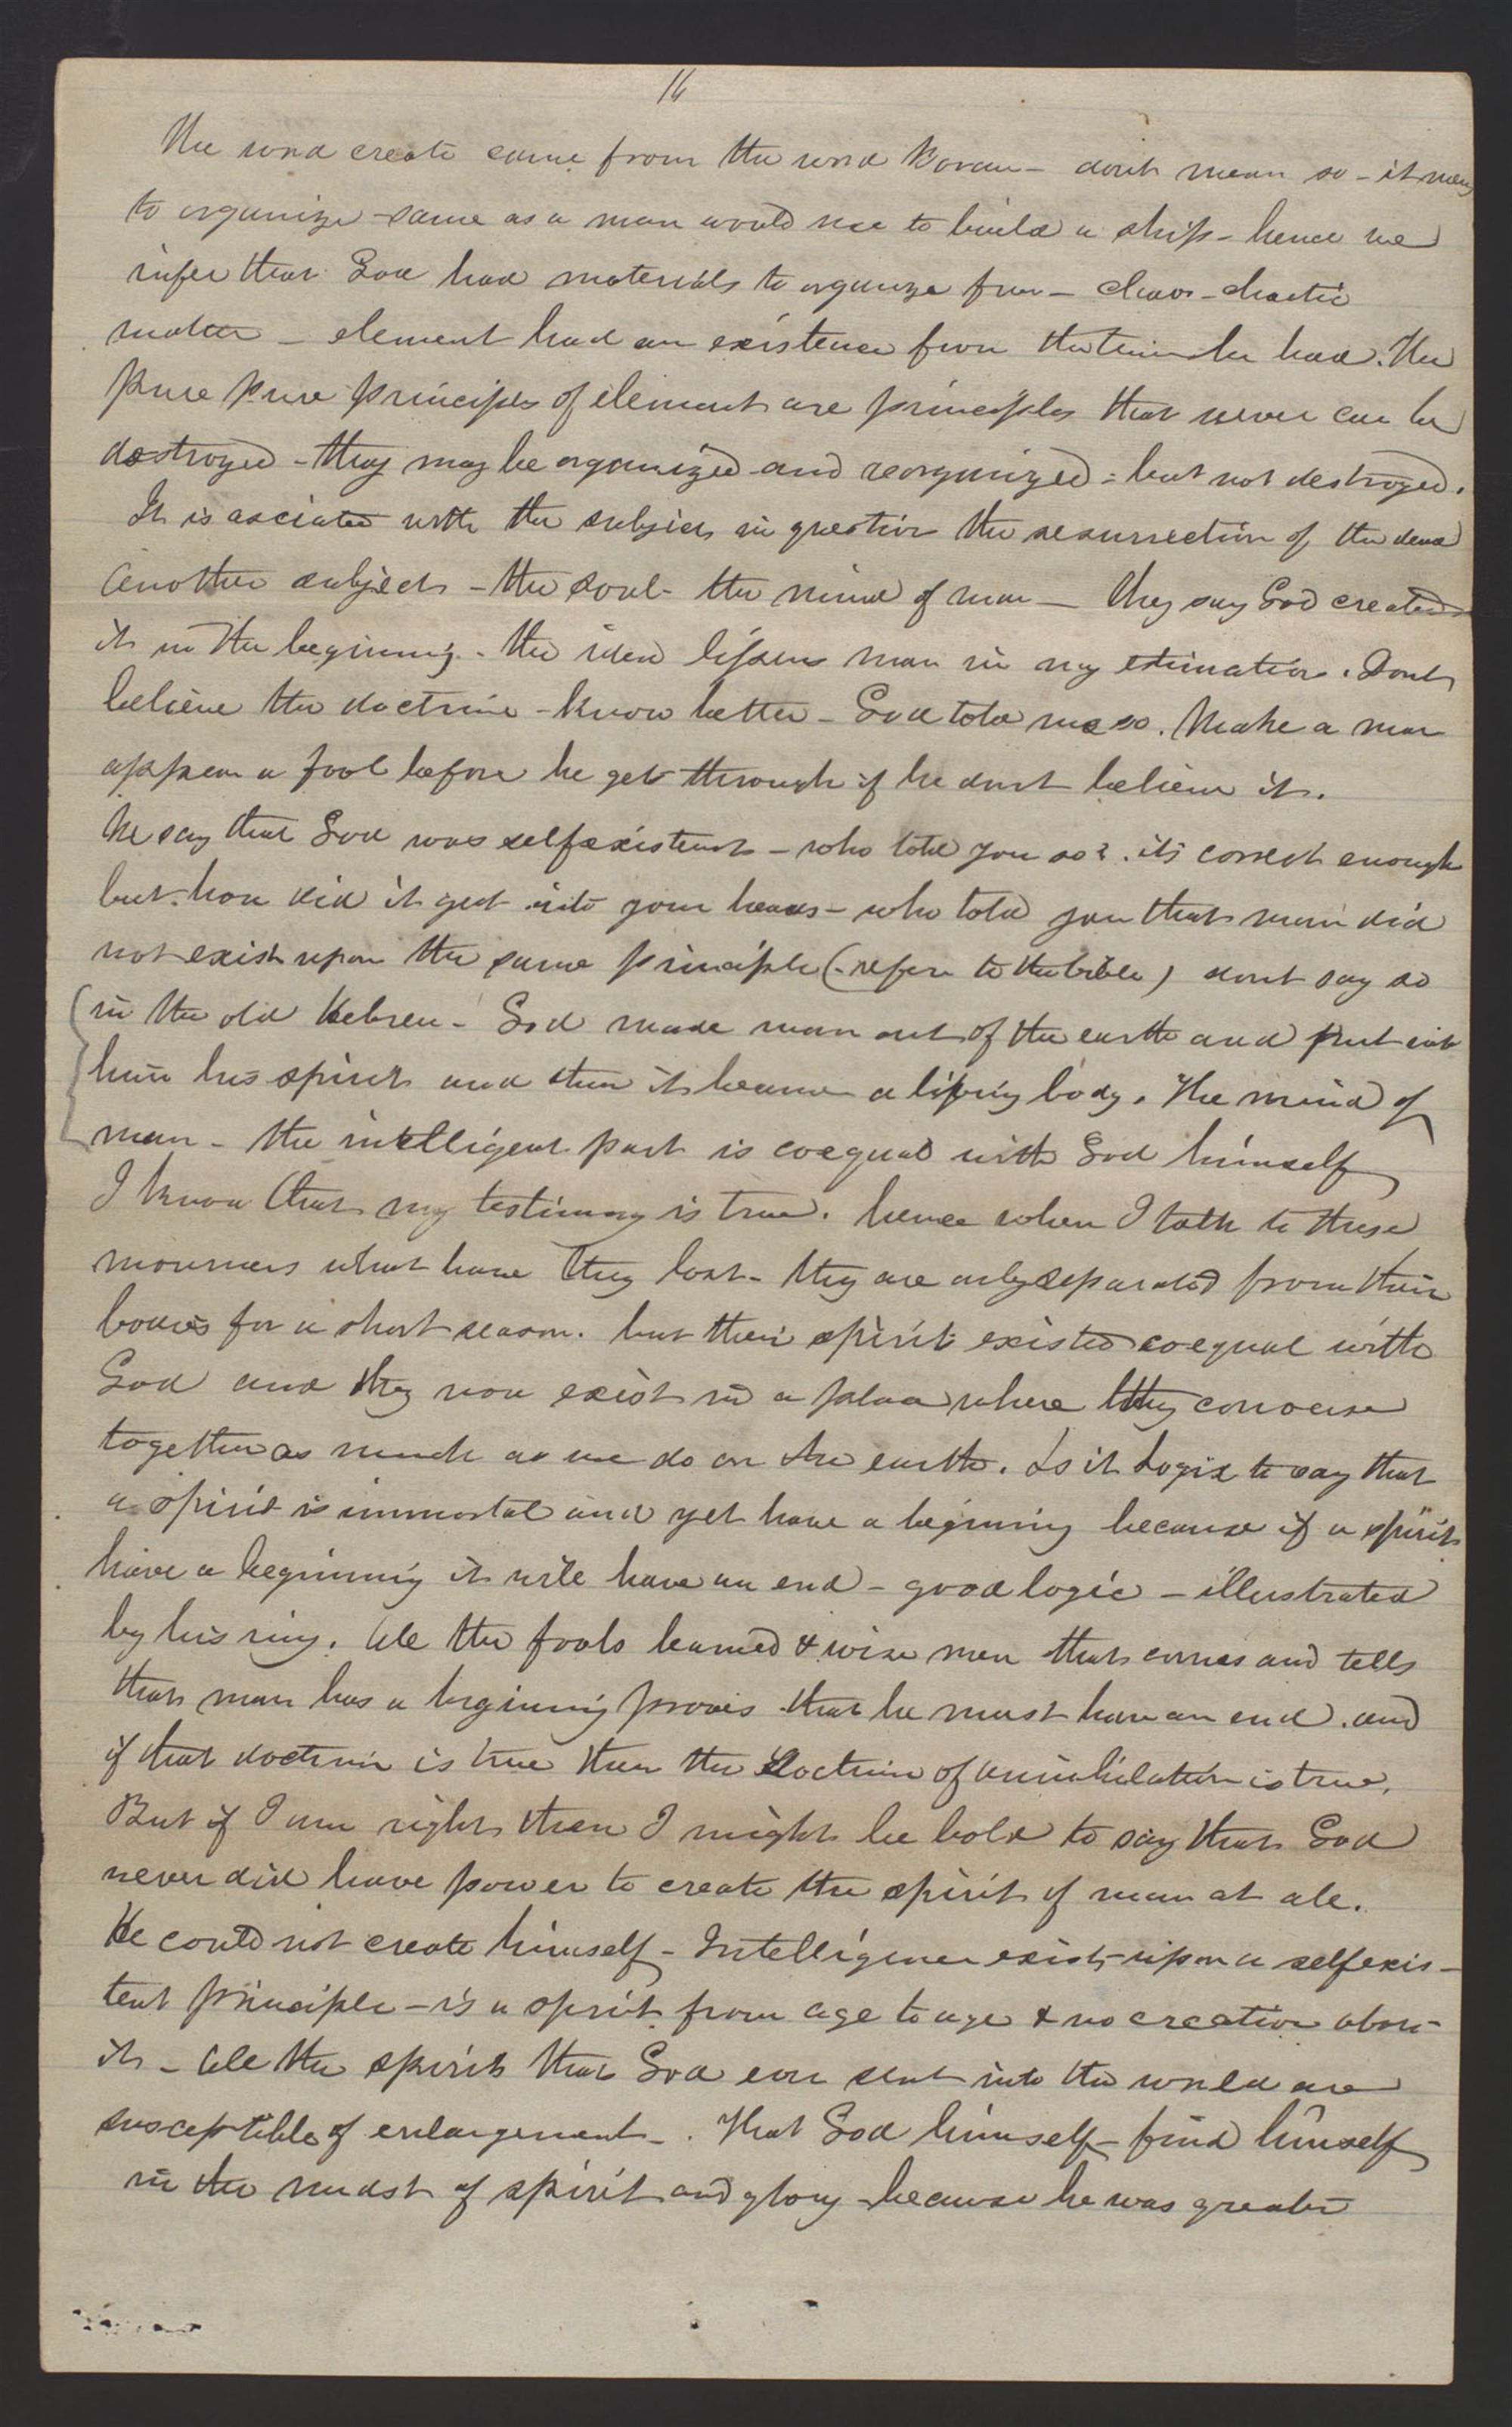 16
The word create came from the word Barau - dont mean so - it means
to organize - same as a man would use to build a ship - hence we
infer that God had materials to organize from - chaos - chaotic
matter - element had an existence from the time he had. The
pure pure principles of element are principles that never can be
destroyed - they may be organized and reorganized = but not destroyed.
It is asciated with the subject in question the resurrection of the dead
Another subject - the soul - the mind of man - they say God created
it in the beginning - the idea lessens man in my estimation. Dont
believe the doctrine - know better - God told me so. Make a man
appear a fool before he gets through if he dont believe it.
We say that God was selfexistent - who told you so? its correct enough
but how did it get into your heads - who told you that man did
not exist upon the same principle (- refers to the bible) dont say so
in the old Hebrew - God made man out of the earth and put into
him his spirit and then it became a living body. The mind of
man - the intelligent part is coequal with God himself
I know that my testimony is true. hence when I talk to these
mourners what have they lost - they are only separated from their
bodies for a short season. but their spirit existed coequal with
God and they now exist in a place where they converse
together as much as we do on the earth. Is it logic to say that
a spirit is immortal and yet have a beginning because if a spirit
have a beginning it will have an end - good logic - illustrated
by his ring. All the fools learned & wise men that comes and tells
that man has a beginning proves that he must have an end. and
if that doctrine is true then the doctrine of annihilation is true.
But if I am right then I might be bold to say that God
never did have power to create the spirit of man at all.
He could not create himself - Intelligence exists upon a selfexis-
tent principle - is a spirit from age to age & no creation about
it - All the spirits that God ever sent into the world are
susceptible of enlargement -. That God himself - find himself
in the midst of spirit and glory - because he was greater